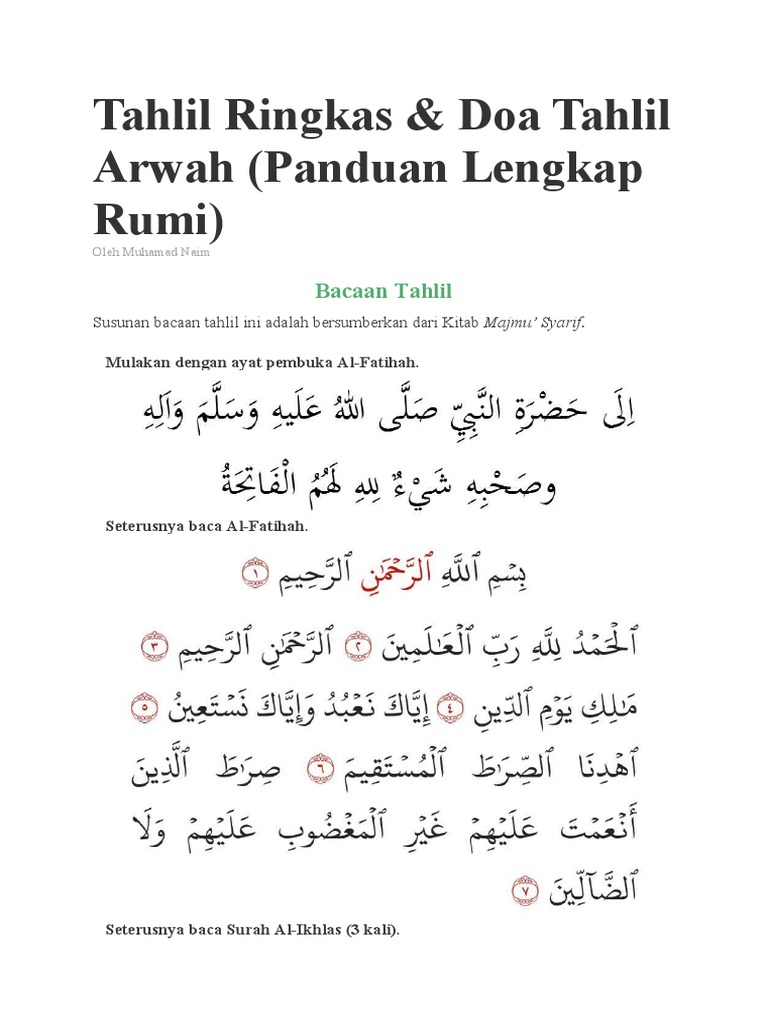 Tahlil Ringkas & Doa Tahlil
Arwah (Panduan Lengkap
Rumi)
Oleh Muhamad Naim
Bacaan Tahlil
Susunan bacaan tahlil ini adalah bersumberkan dari Kitab Majmu’ Syarif.
Mulakan dengan ayat pembuka Al-Fatihah.
اِلَى حَضْرَةِ النَّبِيِّ صَلَّى اللهُ عَلَيهِ وَسَلَّمَ وَاَلِهِ
وصَحْبِهِ شَيْءٌ لِلهِ لَهُمُ الْفَاتِحَةُ
Seterusnya baca Al-Fatihah.
بِسۡمِ ٱللَّهِ ٱلرَّحۡمَٰنِ ٱلرَّحِيمِ ١
ٱلۡحَمۡدُ لِلَّهِ رَبِّ ٱلۡعَٰلَمِينَ ٢ ٱلرَّحۡمَٰنِ ٱلرَّحِيمِ ٣
مَٰلِكِ يَوۡمِ ٱلدِّينِ ٤ إِيَّاكَ نَعۡبُدُ وَإِيَّاكَ نَسۡتَعِينُ ٥
ٱهۡدِنَا ٱلصِّرَٰطَ ٱلۡمُسۡتَقِيمَ ٦ صِرَٰطَ ٱلَّذِينَ
أَنۡعَمۡتَ عَلَيۡهِمۡ غَيۡرِ ٱلۡمَغۡضُوبِ عَلَيۡهِمۡ وَلَا
ٱلضَّآلِّينَ ٧
Seterusnya baca Surah Al-Ikhlas (3 kali).